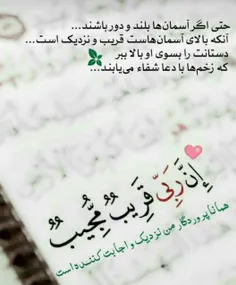 حتی اگر آسمان‌ها بلند و دور باشند...
آنکه بالای آسمان‌هاست قریب و نزدیک است...
دستانت را بسوی او بالا ببر
که زخم‌ها با دعا شفاء می‌یابند...
إِنَّ رَبِّی قَرِیبٌ مُّجِیبٌ
همانا پروردگار من نزدیک و اجابت کننده است